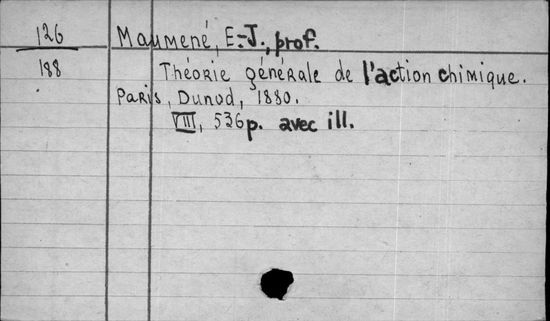 126 Maumené, E.-J., prof.
188 Théorie générale de l'action chimique.
Paris, Dunod, 1880.
VIII, 536 p. avec ill.